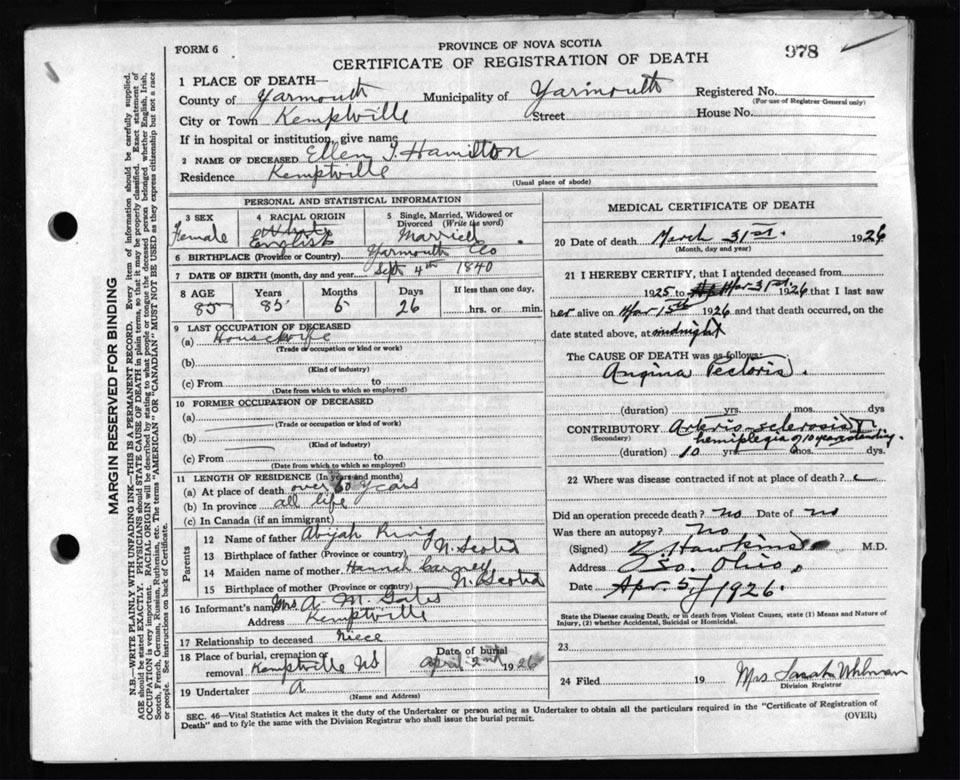 FORM 6
PROVINCE OF NOVA SCOTIA
CERTIFICATE OF REGISTRATION OF DEATH
978
1 PLACE OF DEATH—
County of Yarmouth Municipality of Yarmouth Registered No.
(For use of Registrar General only)
City or Town Kemptville Street House No.
If in hospital or institution, give name
2 NAME OF DECEASED Ellen J. Hamilton
Residence Kemptville
(Usual place of abode)
PERSONAL AND STATISTICAL INFORMATION
3 SEX
Female
4 RACIAL ORIGIN
White
English
5 Single, Married, Widowed or
Divorced (Write the word)
Married
6 BIRTHPLACE (Province or Country) Yarmouth Co
7 DATE OF BIRTH (month, day and year) Sept 4th 1840
8 AGE Years Months Days If less than one day,
85 85 6 26 hrs. or min.
9 LAST OCCUPATION OF DECEASED
(a) Housewife
(Trade or occupation or kind or work)
(b)
(Kind of industry)
(c) From to
(Date from which to which so employed)
10 FORMER OCCUPATION OF DECEASED
(a)
(Trade or occupation or kind of work)
(b)
(Kind of industry)
(c) From to
(Date from which to which so employed)
11 LENGTH OF RESIDENCE (In years and months)
(a) At place of death over 60 years
(b) In province all life
(c) In Canada (if an immigrant)
Parents
12 Name of father Abijah Ring
13 Birthplace of father (Province or country) N. Scotia
14 Maiden name of mother Hannah Carney
15 Birthplace of mother (Province or country) N. Scotia
16 Informant's name Mrs A. M. Gates
Address Kemptville
17 Relationship to deceased niece
18 Place of burial, cremation or
removal Kemptville NS
Date of burial
April 2nd 1926
19 Undertaker A
(Name and Address)
MEDICAL CERTIFICATE OF DEATH
20 Date of death March 31st. 1926
(Month, day and year)
21 I HEREBY CERTIFY, that I attended deceased from
1925 to Mar 31st 1926 that I last saw
her alive on Mar 15th 1926 and that death occurred, on the
date stated above, at midnight
The CAUSE OF DEATH was as follows:
Angina Pectoris.
(duration) yrs. mos. dys
CONTRIBUTORY Arterio-sclerosis
(Secondary) hemiplegia of 10 years standing.
(duration) 10 yrs mos. dys.
22 Where was disease contracted if not at place of death?
Did an operation precede death? no Date of no
Was there an autopsy? No
(Signed) Z. Hawkins M.D.
Address So. Ohio,
Date Apr. 5, 1926.
State the Disease causing Death, or in Death from Violent Causes, state (1) Means and Nature of
Injury, (2) whether Accidental, Suicidal or Homicidal.
23
24 Filed 19 Mrs Sarah Whitman
Division Registrar
SEC. 46—Vital Statistics Act makes it the duty of the Undertaker or person acting as Undertaker to obtain all the particulars required in the "Certificate of Registration of
Death" and to fyle the same with the Division Registrar who shall issue the burial permit.
(OVER)
MARGIN RESERVED FOR BINDING
N.B.—WRITE PLAINLY WITH UNFADING INK—THIS IS A PERMANENT RECORD. Every item of information should be carefully supplied.
AGE should be stated EXACTLY. PHYSICIANS should STATE CAUSE OF DEATH in plain terms, so that it may be properly classified. Exact statement of
OCCUPATION is very important. RACIAL ORIGIN will be described by stating to what people or tongue the deceased person belonged whether English, Irish,
Scotch, French, German, Russian, Ruthenian, etc. The terms "AMERICAN" OR "CANADIAN" MUST NOT BE USED as they express citizenship but not a race
or people. See instructions on back of Certificate.